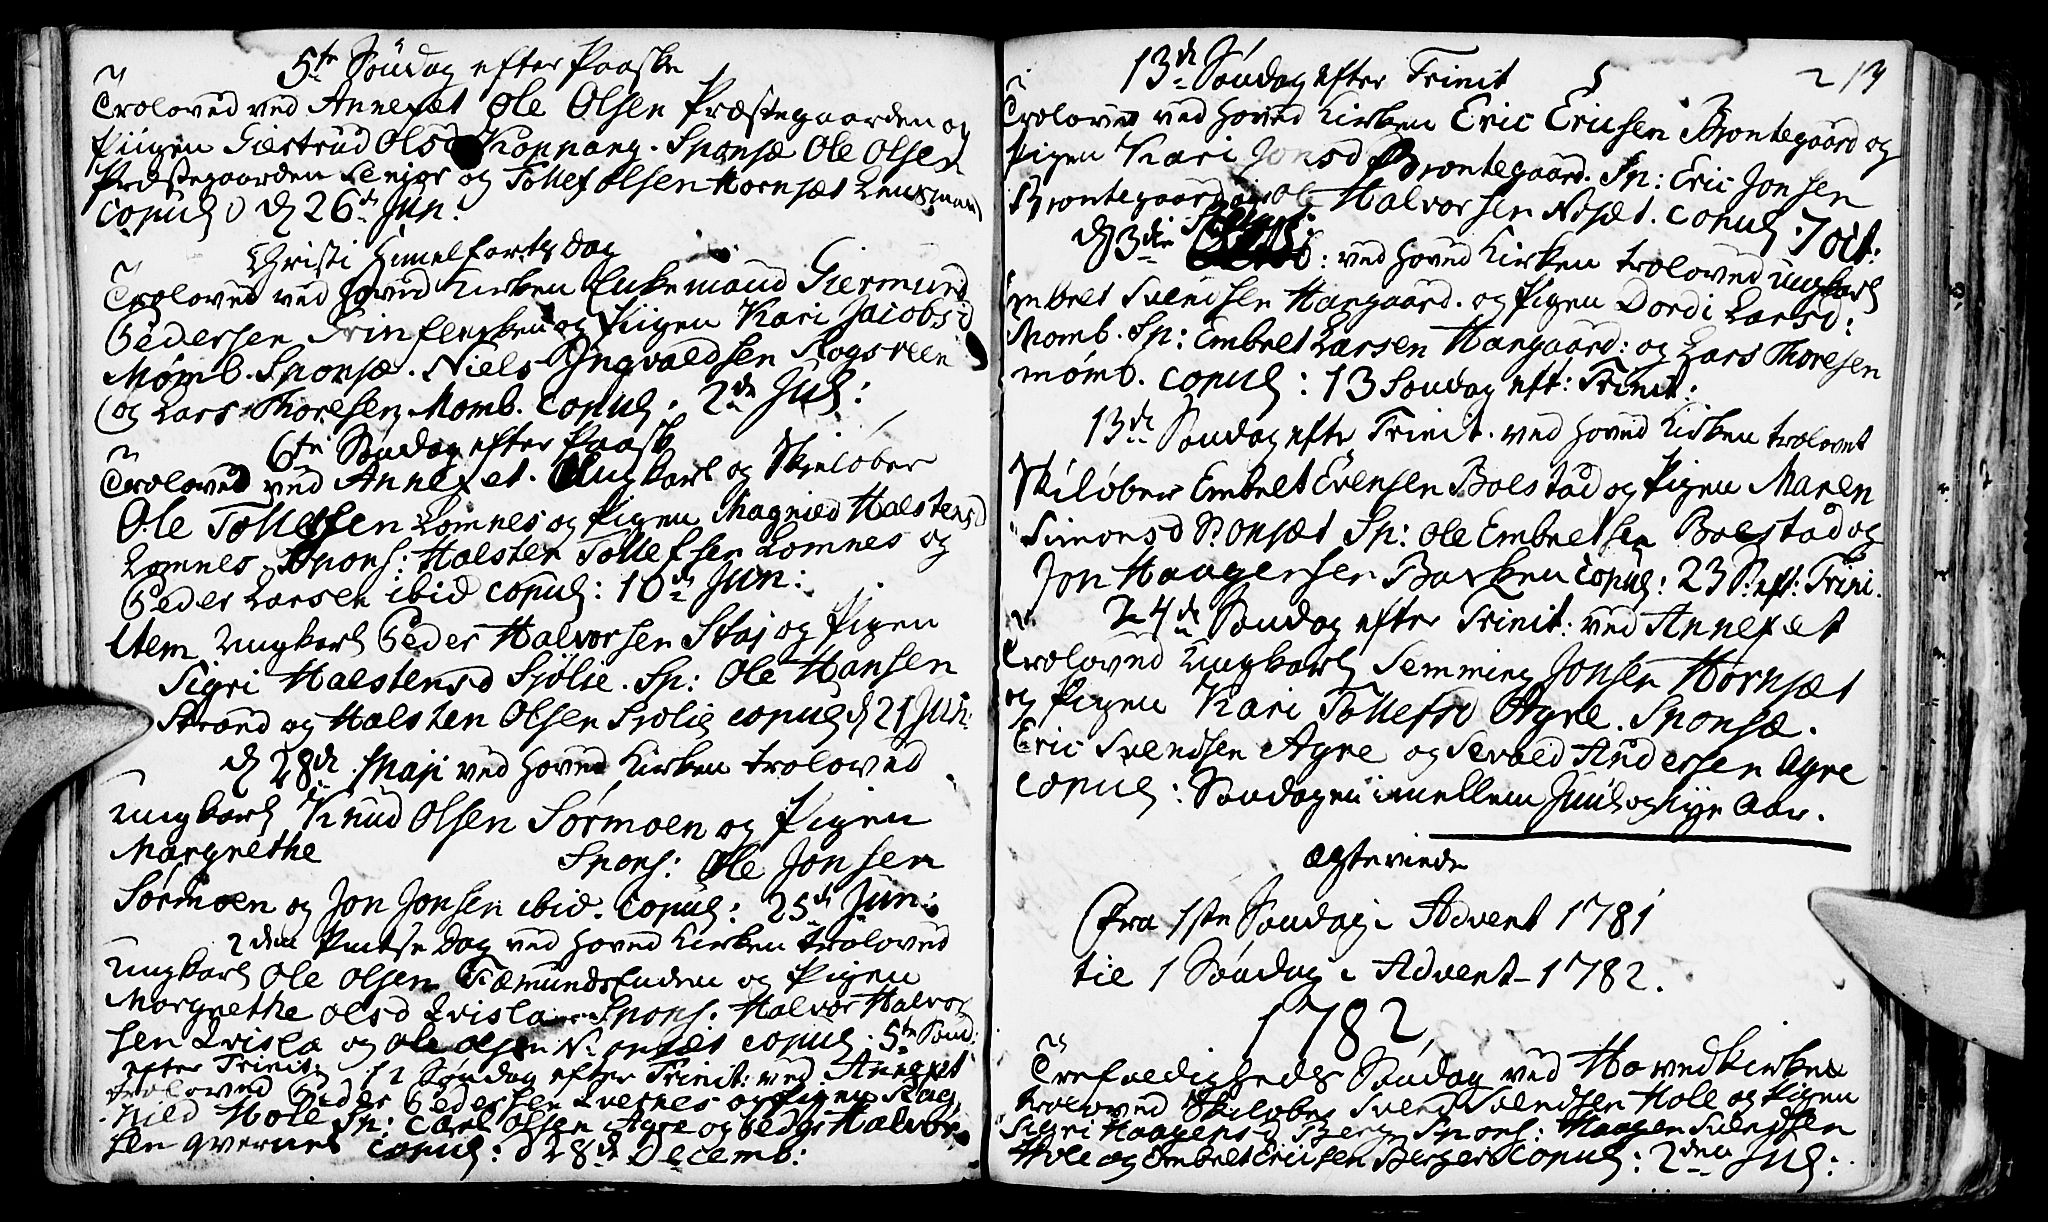 5te Søndag efter Paaske
Troloved ved Annexet Ole Olsen Præstegaarden og
Piigen Giertrud Olsd Koppang. Sponsæ Ole Olsen
Præstegaarden Senjor og Tollef Olsen Hornset Lensmand
copul. d 26de Jun:
Christi Himelfarts Dag
Troloved ved Hoved Kirken Enkemand Giermund
Pedersen og Piigen Kari Jacobsd
Momb. Sponsæ. Niels Yngvaldsen Rogsveen
og Lars Thoresen Momb. Copul. 2de Jul:
6te Søndag efter Paaske
Troloved ved Annexet. Ungkarl og Skieløber
Ole Tollefsen Lomnes og Pigen Magnied Halstensd
Lomnes. Spons: Halsten Tollefsen Lomnes og
Peder Larsen ibid copul: 10de Jun:
Item Ungkarl Peder Halvorsen Staj og Pigen
Sigri Halstensd Sjölie. Sp: Ole Hansen
Strand og Halsten Olsen Sjølie copul d 21 Jun:
d 28de Maji ved Hoved Kirken troloved
Ungkarl Knud Olsen Sørmoen og Pigen
Margrethe Spons: Ole Jonsen
Sørmoen og Jon Jonsen ibid. Copul: 25de Jun:
2den Pintse Dag ved Hoved Kirken troloved
Ungkarl Ole Olsen Fæmundsenden og Pigen
Margrethe Olsd Qvisla Spons: Halvor Halvor
sen Qvisla og Ole Olsen copul. 5te Sønd:
efter Trinit: 12 Søndag efter Trinit: ved Annexet
troloved Peder Pedersen Qvernes og Pigen Rag
nild Hole Sp: Carl Olsen Agre og Peder Halvor
sen Qvernes copul: d 28de Decemb:
13de Søndag efter Trinit
Troloved ved Hoved Kirken Eric Ericsen Brontegaard og
Pigen Kari Jonsd Brontegaard. Sp: Eric Jonsen
Brontegaard og Halvorsen Nesæt. Copul. 7 oct:
d 3die ved Hoved Kirken troloved Ungkarl
Embret Svendsen Hangaard. og Pigen Dordi Larsd:
Momb. Sp: Embret Larsen Hangaard: og Lars Thoresen
momb. copul: 13 Søndag eft: Trinit:
13de Søndag efte Trinit. ved Hoved Kirken trolovet
Skiløber Embret Evensen Bolstad og Pigen Maren
Simonsd Sp: Ole Embretsen Bolstad og
Jon Haagensen Barken copul: 23 S. eft: Trini.
24de Søndag efter Trinit: ved Annexet
Troloved Ungkarl Semming Jonsen Hornsæt
og Pigen Kari Tollefsd Agre. Sponsæ.
Eric Svendsen Agre og Sevald Andersen Agre
copul: Søndagen imellem Juul og Nye Aar.
ægteviede
Fra 1ste Søndag i Advent 1781
til 1 Søndag i Advent 1782.
1782
Trefoldigheds Søndag ved Hovedkirken
troloved Skiløber Svend Svendsen Hole og Pigen
Sigri Haagensd Berg Spons: Haagen Svendsen
Hole og Embret Ericsen Berger copul: 2den Jul: